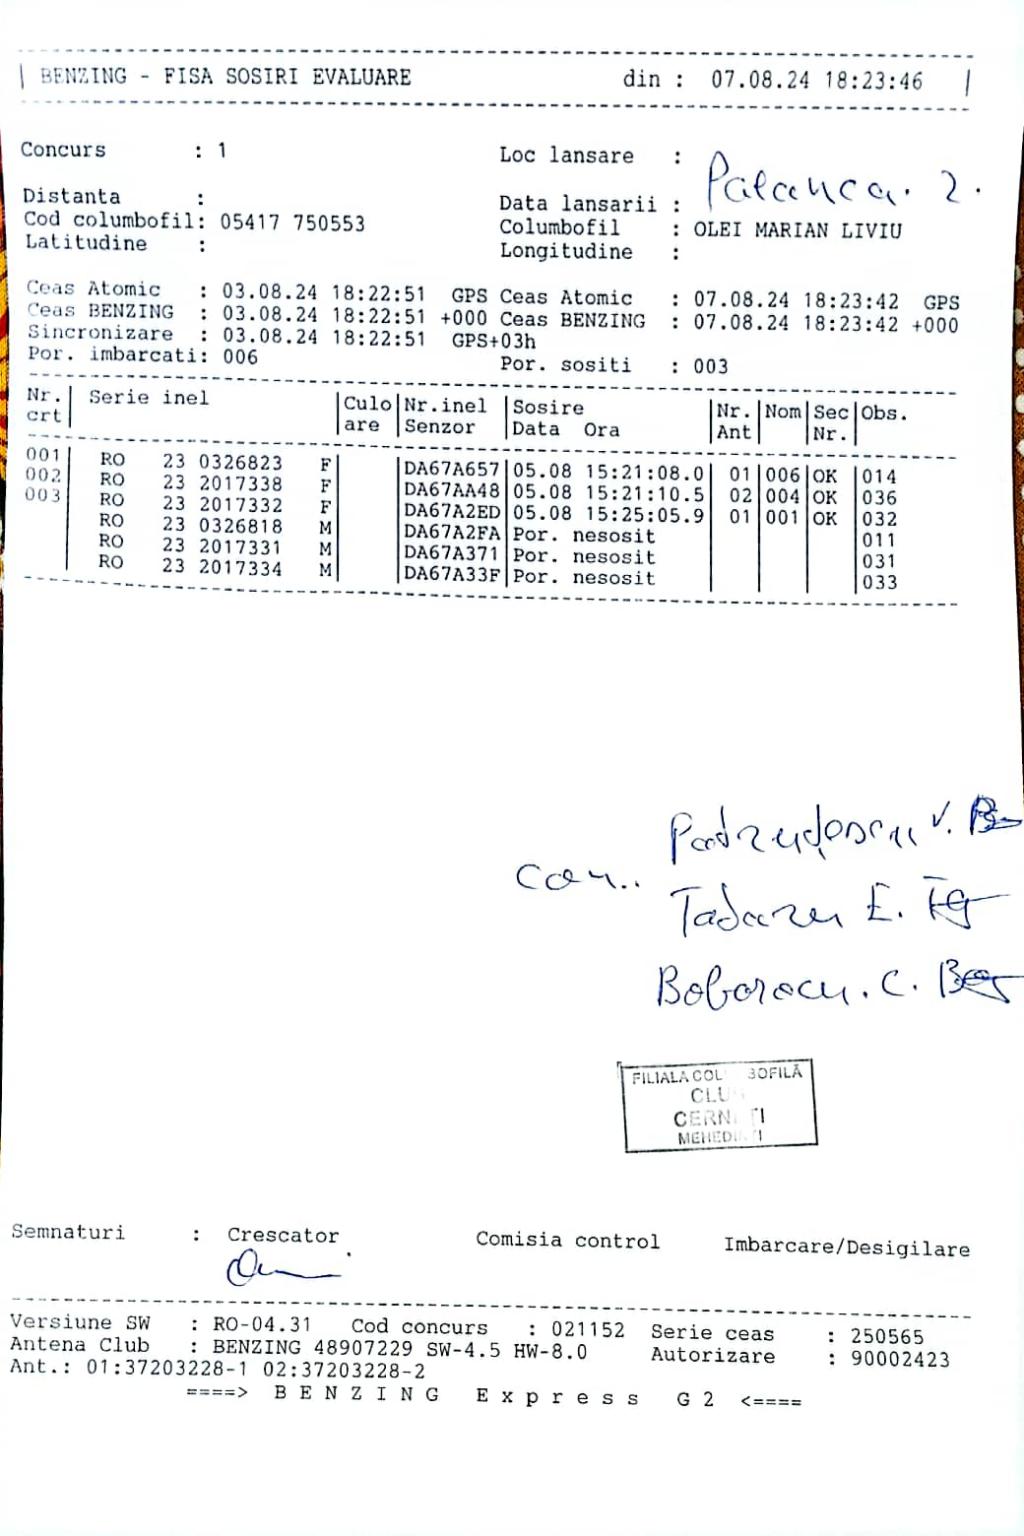 BENZING - FISA SOSIRI EVALUARE din : 07.08.24 18:23:46
Concurs : 1 Loc lansare : Palanca. 2.
Distanta : Data lansarii :
Cod columbofil: 05417 750553 Columbofil : OLEI MARIAN LIVIU
Latitudine : Longitudine :
Ceas Atomic : 03.08.24 18:22:51 GPS Ceas Atomic : 07.08.24 18:23:42 GPS
Ceas BENZING : 03.08.24 18:22:51 +000 Ceas BENZING : 07.08.24 18:23:42 +000
Sincronizare : 03.08.24 18:22:51 GPS+03h
Por. imbarcati: 006 Por. sositi : 003
Nr. Serie inel Culo Nr.inel Sosire Nr. Nom Sec Obs.
crt are Senzor Data Ora Ant Nr.
001 RO 23 0326823 F DA67A657 05.08 15:21:08.0 01 006 OK 014
002 RO 23 2017338 F DA67AA48 05.08 15:21:10.5 02 004 OK 036
003 RO 23 2017332 F DA67A2ED 05.08 15:25:05.9 01 001 OK 032
RO 23 0326818 M DA67A2FA Por. nesosit 011
RO 23 2017331 M DA67A371 Por. nesosit 031
RO 23 2017334 M DA67A33F Por. nesosit 033
V.
Tadaru E.
Boboracu. C.
FILIALA COL BOFILĂ
CLU
CERN TI
MEHEDI TI
Semnaturi : Crescator Comisia control Imbarcare/Desigilare
Versiune SW : RO-04.31 Cod concurs : 021152 Serie ceas : 250565
Antena Club : BENZING 48907229 SW-4.5 HW-8.0 Autorizare : 90002423
Ant.: 01:37203228-1 02:37203228-2
====> B E N Z I N G E x p r e s s G 2 <====